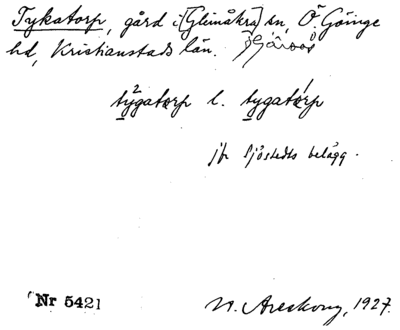 Tykatorp, gård i [Glimåkra] sn, Ö. Göinge
hd, Kristianstads län.
tỳ²gatɔrp l. tygatɔ¹rp
jfr Sjöstedts belägg.
Nr 5421
W. Areskoug, 1927.